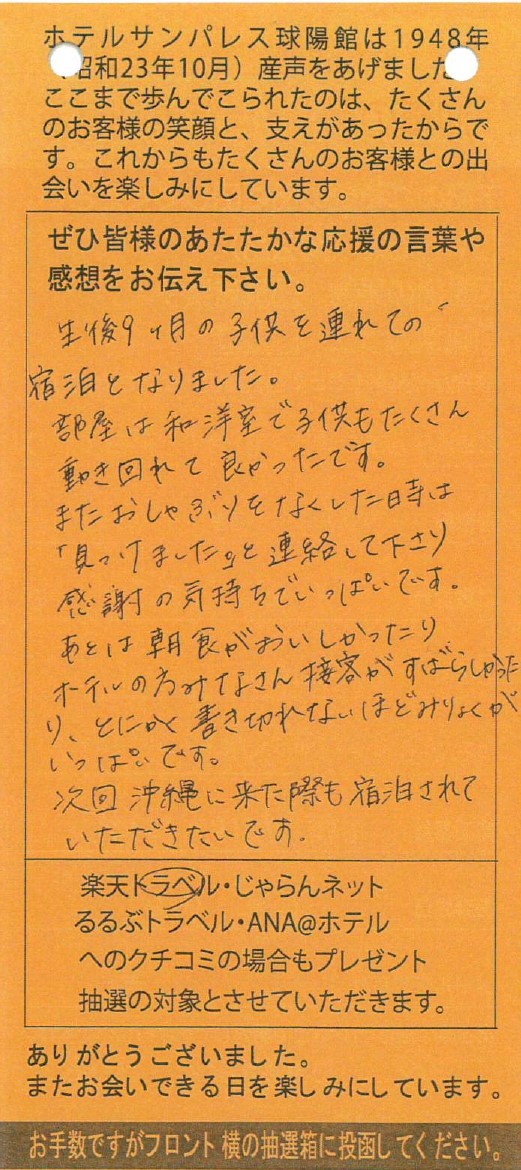 ホテルサンパレス球陽館は1948年
（昭和23年10月）産声をあげました
ここまで歩んでこられたのは、たくさん
のお客様の笑顔と、支えがあったからで
す。これからもたくさんのお客様との出
会いを楽しみにしています。
ぜひ皆様のあたたかな応援の言葉や
感想をお伝え下さい。
生後9ヶ月の子供を連れての
宿泊となりました。
部屋は和洋室で子供もたくさん
動き回れて良かったです。
またおしゃぶりをなくした時は
「見つけました」と連絡して下さり
感謝の気持ちでいっぱいです。
あとは朝食がおいしかったり
ホテルの方みなさん接客がすばらしかった
り、とにかく書き切れないほどみりょくが
いっぱいです。
次回沖縄に来た際も宿泊されて
いただきたいです。
楽天トラベル・じゃらんネット
るるぶトラベル・ANA@ホテル
へのクチコミの場合もプレゼント
抽選の対象とさせていただきます。
ありがとうございました。
またお会いできる日を楽しみにしています。
お手数ですがフロント横の抽選箱に投函してください。